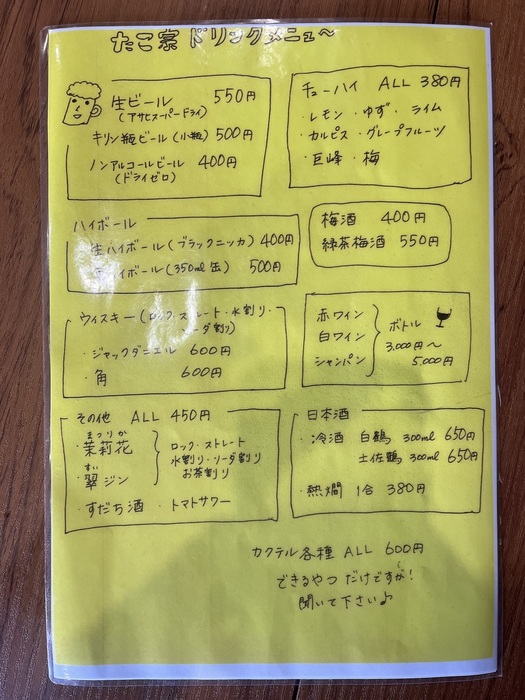 たこ家 ドリンクメニュー〜
生ビール 550円
(アサヒスーパードライ)
キリン瓶ビール(小瓶) 500円
ノンアルコールビール 400円
(ドライゼロ)
チューハイ ALL 380円
・レモン・ゆず・ライム
・カルピス・グレープフルーツ
・巨峰・梅
ハイボール
生ハイボール(ブラックニッカ) 400円
ハイボール(350ml缶) 500円
梅酒 400円
緑茶梅酒 550円
ウィスキー(ロック・ストレート・水割り・
ソーダ割り)
・ジャックダニエル 600円
・角 600円
赤ワイン
白ワイン
シャンパン
ボトル
3,000円〜
5,000円
その他 ALL 450円
まつりか
・茉莉花
すい
・翠ジン
ロック・ストレート
水割り・ソーダ割り
お茶割り
・すだち酒 ・トマトサワー
日本酒
・冷酒 白鶴 300ml 650円
土佐鶴 300ml 650円
・熱燗 1合 380円
カクテル各種 ALL 600円
できるやつだけですが!
聞いて下さい♪